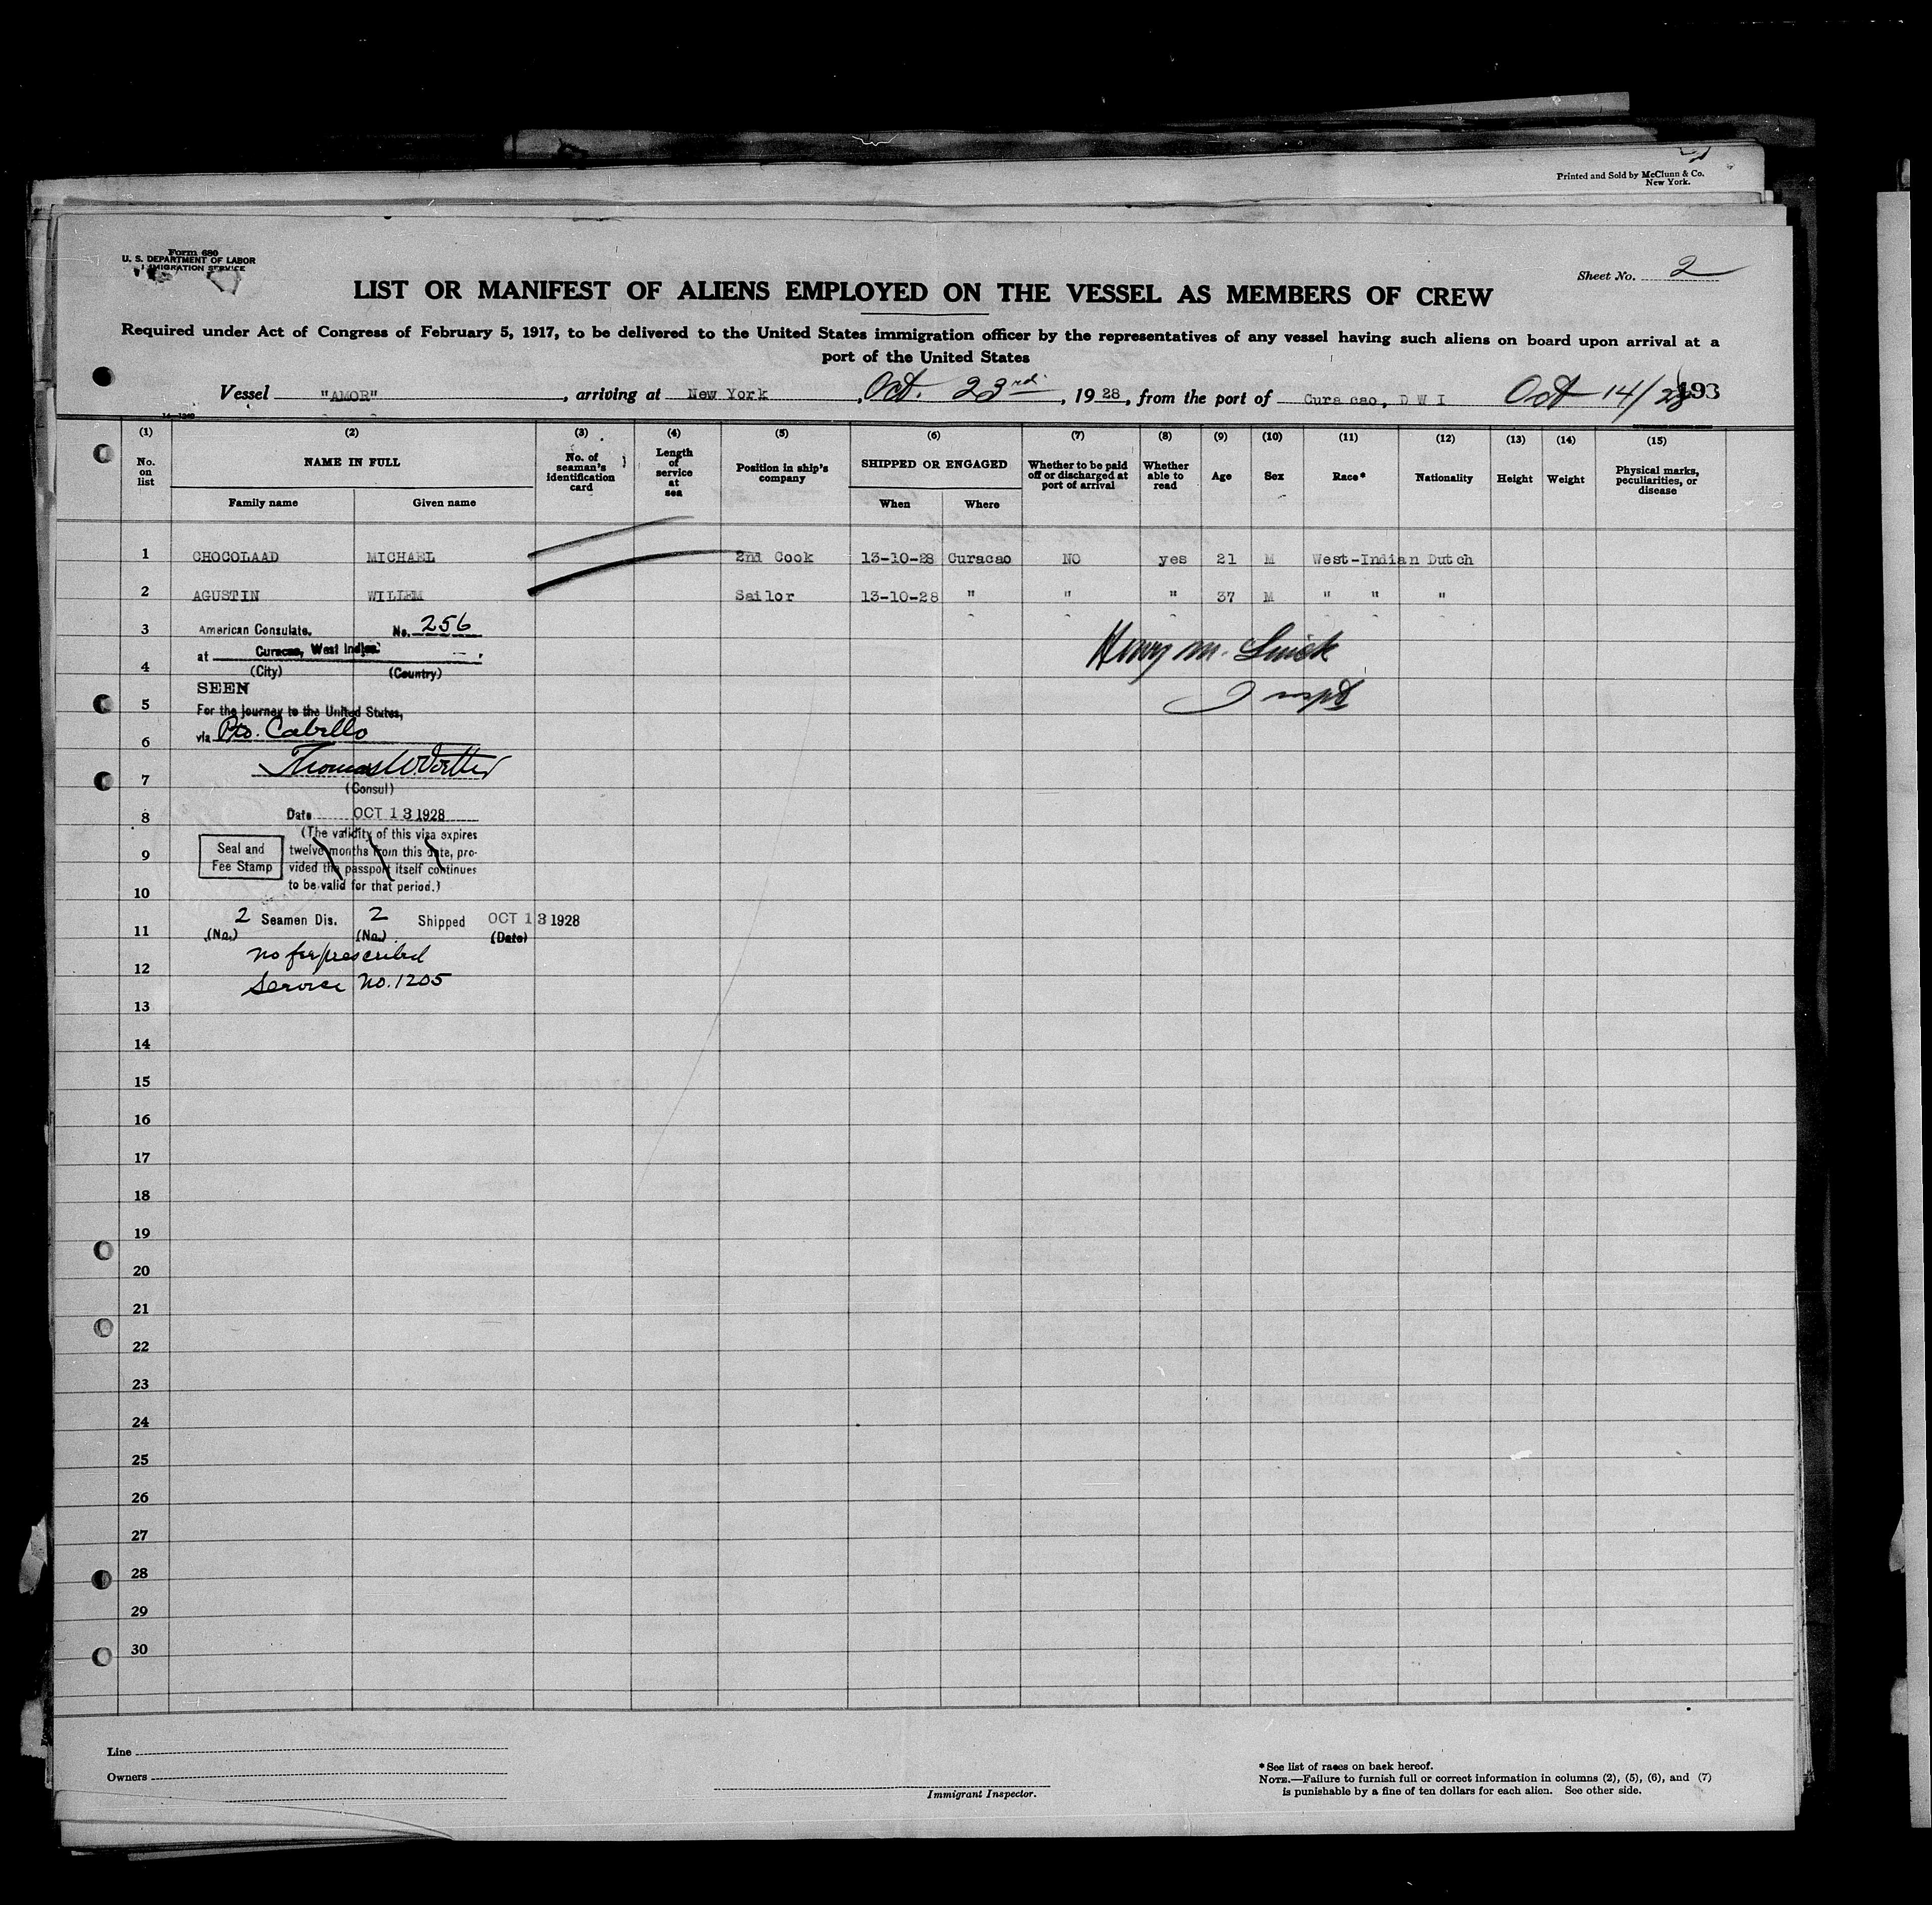 Printed and Sold by McClunn & Co.
New York.
Form 680
U. S. DEPARTMENT OF LABOR
IMMIGRATION SERVICE
Sheet No. 2
LIST OR MANIFEST OF ALIENS EMPLOYED ON THE VESSEL AS MEMBERS OF CREW
Required under Act of Congress of February 5, 1917, to be delivered to the United States immigration officer by the representatives of any vessel having such aliens on board upon arrival at a
port of the United States
Vessel "AMOR", arriving at New York, Oct. 23rd, 1928, from the port of Curacao, D W I Oct 14/28 193
14-1240
(1) (2) (3) (4) (5) (6) (7) (8) (9) (10) (11) (12) (13) (14) (15)
No. on list
NAME IN FULL
Family name Given name
No. of seaman's identification card
Length of service at sea
Position in ship's company
SHIPPED OR ENGAGED
When Where
Whether to be paid off or discharged at port of arrival
Whether able to read
Age
Sex
Race*
Nationality
Height
Weight
Physical marks, peculiarities, or disease
1 CHOCOLAAD MICHAEL 2nd Cook 13-10-28 Curacao NO yes 21 M West-Indian Dutch
2 AGUSTIN WILLEM Sailor 13-10-28 " " " 37 M " " "
3 American Consulate. No. 256
at Curacao, West Indies.
4 (City) (Country)
SEEN
5 For the journey to the United States,
6 via Pto. Cabello
Henry M.
Inspt
7 (Consul)
8 Date OCT 13 1928
(The validity of this visa expires
9 Seal and Fee Stamp twelve months from this date, pro-
vided the passport itself continues
10 to be valid for that period.)
2 Seamen Dis. 2 Shipped OCT 13 1928
11 (No.) (No.) (Date)
no fee prescribed
12 Service No. 1205
13
14
15
16
17
18
19
20
21
22
23
24
25
26
27
28
29
30
Line
Owners
Immigrant Inspector.
*See list of races on back hereof.
NOTE.—Failure to furnish full or correct information in columns (2), (5), (6), and (7)
is punishable by a fine of ten dollars for each alien. See other side.